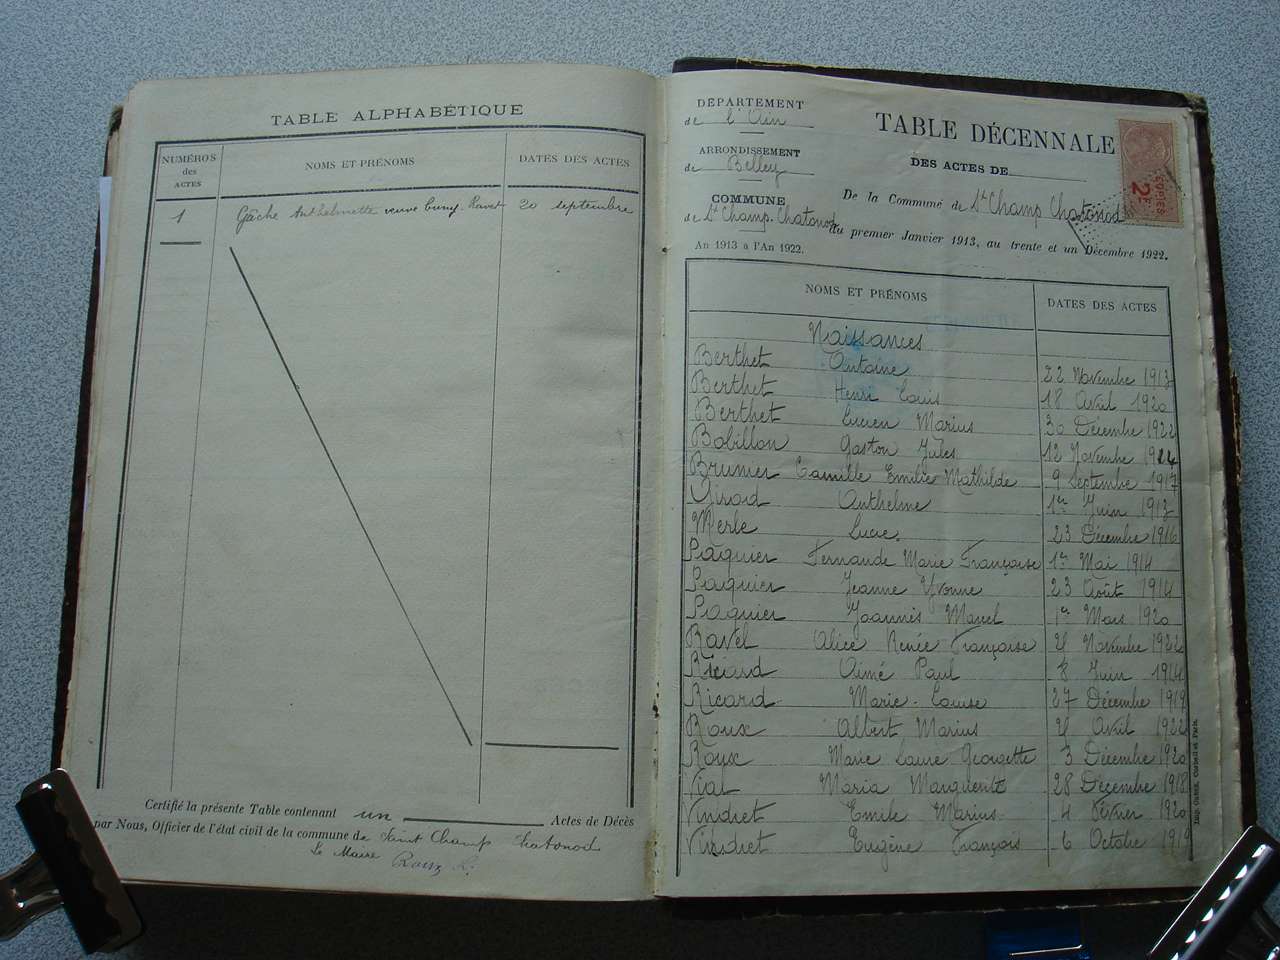 TABLE ALPHABÉTIQUE
NUMÉROS des ACTES
NOMS ET PRÉNOMS
DATES DES ACTES
1 Gâche Anthelmette veuve Ravet 20 septembre
Certifié la présente Table contenant un Actes de Décès
par Nous, Officier de l'état civil de la commune de Saint Champ Chatonod
Le Maire Roux
DÉPARTEMENT
de l'Ain
ARRONDISSEMENT
de Belley
COMMUNE
de St Champ-Chatonod
An 1913 à l'An 1922.
TABLE DÉCENNALE
DES ACTES DE
De la Commune de St Champ Chatonod
du premier Janvier 1913, au trente et un Décembre 1922.
2F
NOMS ET PRÉNOMS DATES DES ACTES
Naissances
Berthet Antoine 22 Novembre 1913
Berthet Henri Louis 18 Avril 1920
Berthet Lucien Marius 30 Décembre 1922
Bobillon Gaston Jules 12 Novembre
Brunier Camille Emilie Mathilde 9 Septembre 1917
Girod Anthelme 1er Juin 1913
Merle Lucie 23 Décembre 1916
Paquier Fernande Marie Françoise 1er Mai 1914
Paquier Jeanne Yvonne 23 Août 1914
Paquier Joannès Marcel 1er Mars 1920
Ravet Alice Renée Françoise Novembre 1922
Ricard Aimé Paul 8 Juin 1914
Ricard Marie-Louise 27 Décembre 1919
Roux Albert Marius Avril 1922
Roux Marie Laure Georgette 3 Décembre 1920
Vial Maria Marguerite 28 Décembre 1918
Vindret Emile Marius 4 Février 1920
Vindret Eugène François 6 Octobre 1919